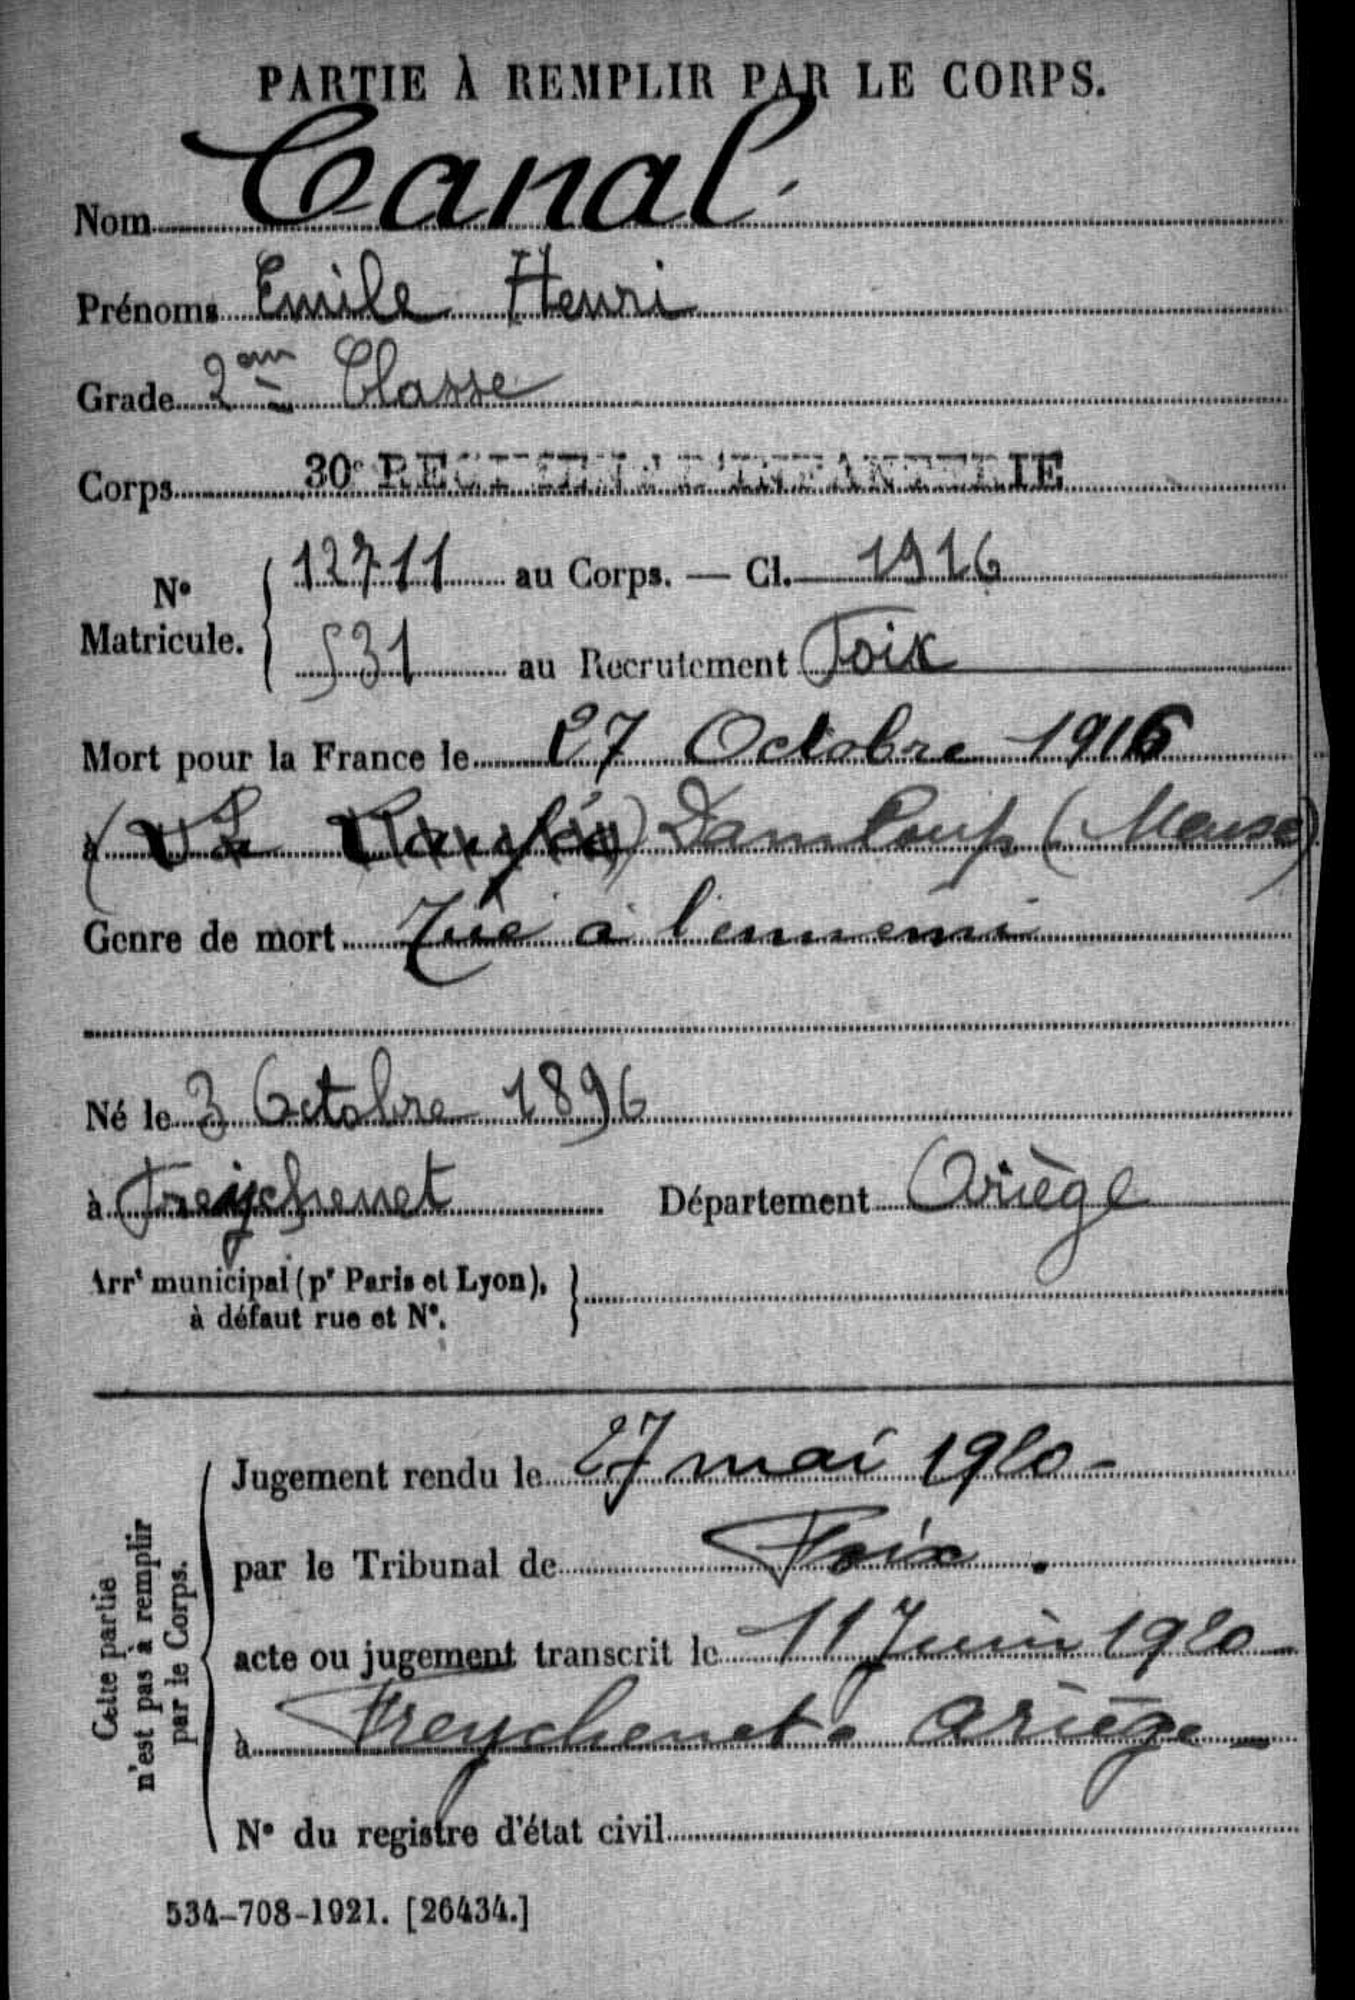 PARTIE À REMPLIR PAR LE CORPS.
Nom Canal
Prénoms Emile Henri
Grade 2em Classe
Corps 30e REGIMENT D'INFANTERIE
No Matricule. 12711 au Corps. — Cl. 1916
531 au Recrutement Foix
Mort pour la France le 27 Octobre 1916
à Damloup (Meuse)
Genre de mort Tué à l'ennemi
Né le 3 Octobre 1896
à Freychenet Département Ariège
Arrt municipal (pr Paris et Lyon),
à défaut rue et No.
Cette partie
n'est pas à remplir
par le Corps.
Jugement rendu le 27 mai 1920 -
par le Tribunal de Foix.
acte ou jugement transcrit le 11 Juin 1920 -
à Freychenet. Ariège -
No du registre d'état civil
534-708-1921. [26434.]